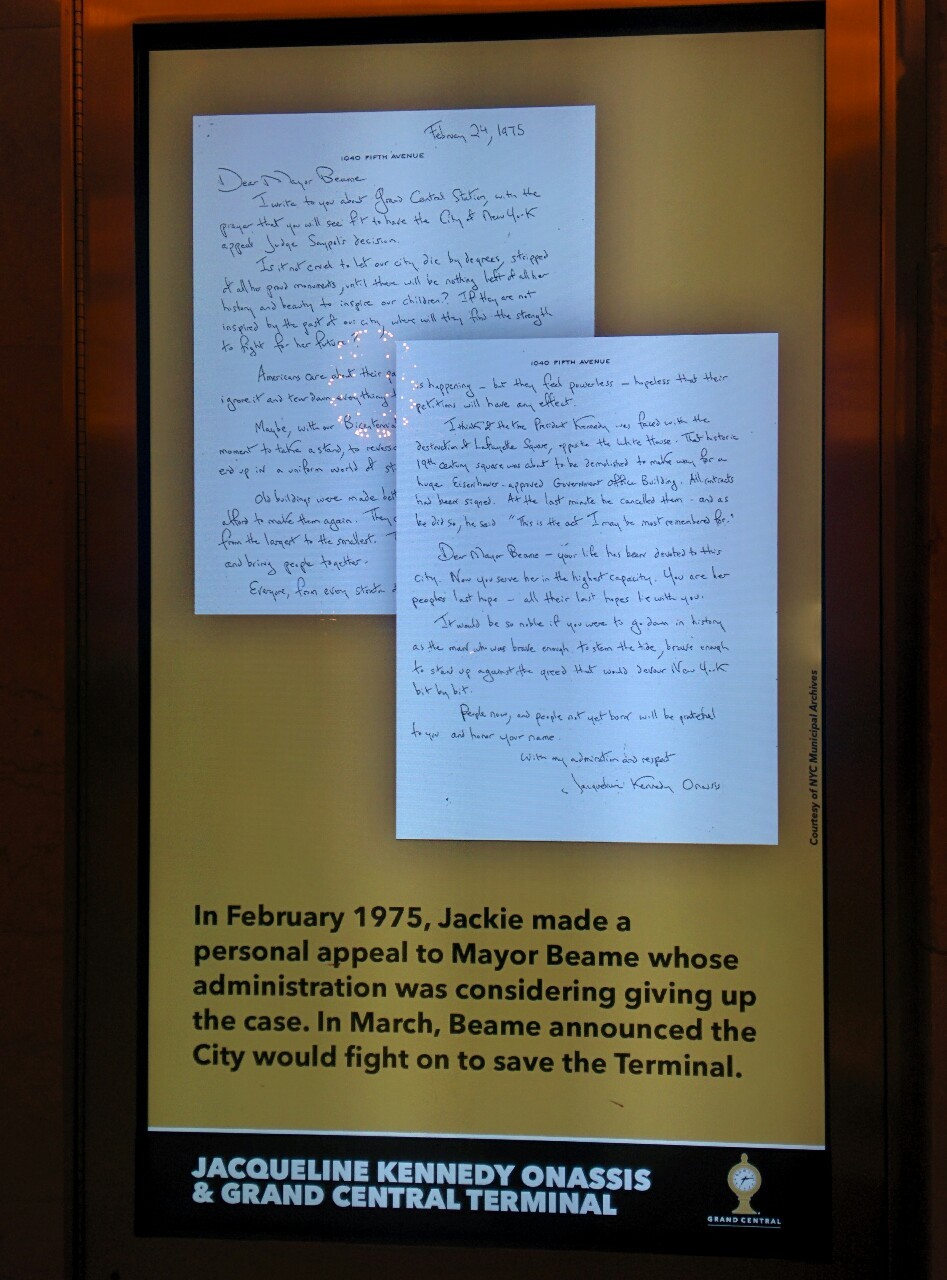 February 24, 1975
1040 FIFTH AVENUE
Dear Mayor Beame
I write to you about Grand Central Station, with the
prayer that you will see fit to have the City of New York
appeal Judge Saypol's decision.
Is it not cruel to let our city die by degrees, stripped
of all her proud monuments, until there will be nothing left of all her
history and beauty to inspire our children? If they are not
inspired by the past of our city, where will they find the strength
to fight for her future?
Americans care about their pa
ignore it and tear down everything
Maybe, with our Bicentennia
moment to take a stand, to reverse
end up in a uniform world of st
Old buildings were made bett
afford to make them again. They
from the largest to the smallest. T
and bring people together.
Everyone, from every strata
1040 FIFTH AVENUE
is happening – but they feel powerless – hopeless that their
petitions will have any effect
I think of the time President Kennedy was faced with the
destruction of Lafayette Square, opposite the White House. That historic
19th century square was about to be demolished to make way for a
huge Eisenhower-approved Government Office Building. All contracts
had been signed. At the last minute he cancelled them - and as
he did so, he said "This is the act I may be most remembered for."
Dear Mayor Beame – your life has been devoted to this
city. Now you serve her in the highest capacity. You are her
people's last hope – all their last hopes lie with you.
It would be so noble if you were to go down in history
as the man who was brave enough to stem the tide, brave enough
to stand up against the greed that would devour New York
bit by bit.
People now, and people not yet born will be grateful
to you and honor your name.
With my admiration and respect
Jacqueline Kennedy Onassis
Courtesy of NYC Municipal Archives
In February 1975, Jackie made a
personal appeal to Mayor Beame whose
administration was considering giving up
the case. In March, Beame announced the
City would fight on to save the Terminal.
JACQUELINE KENNEDY ONASSIS
& GRAND CENTRAL TERMINAL
GRAND CENTRAL